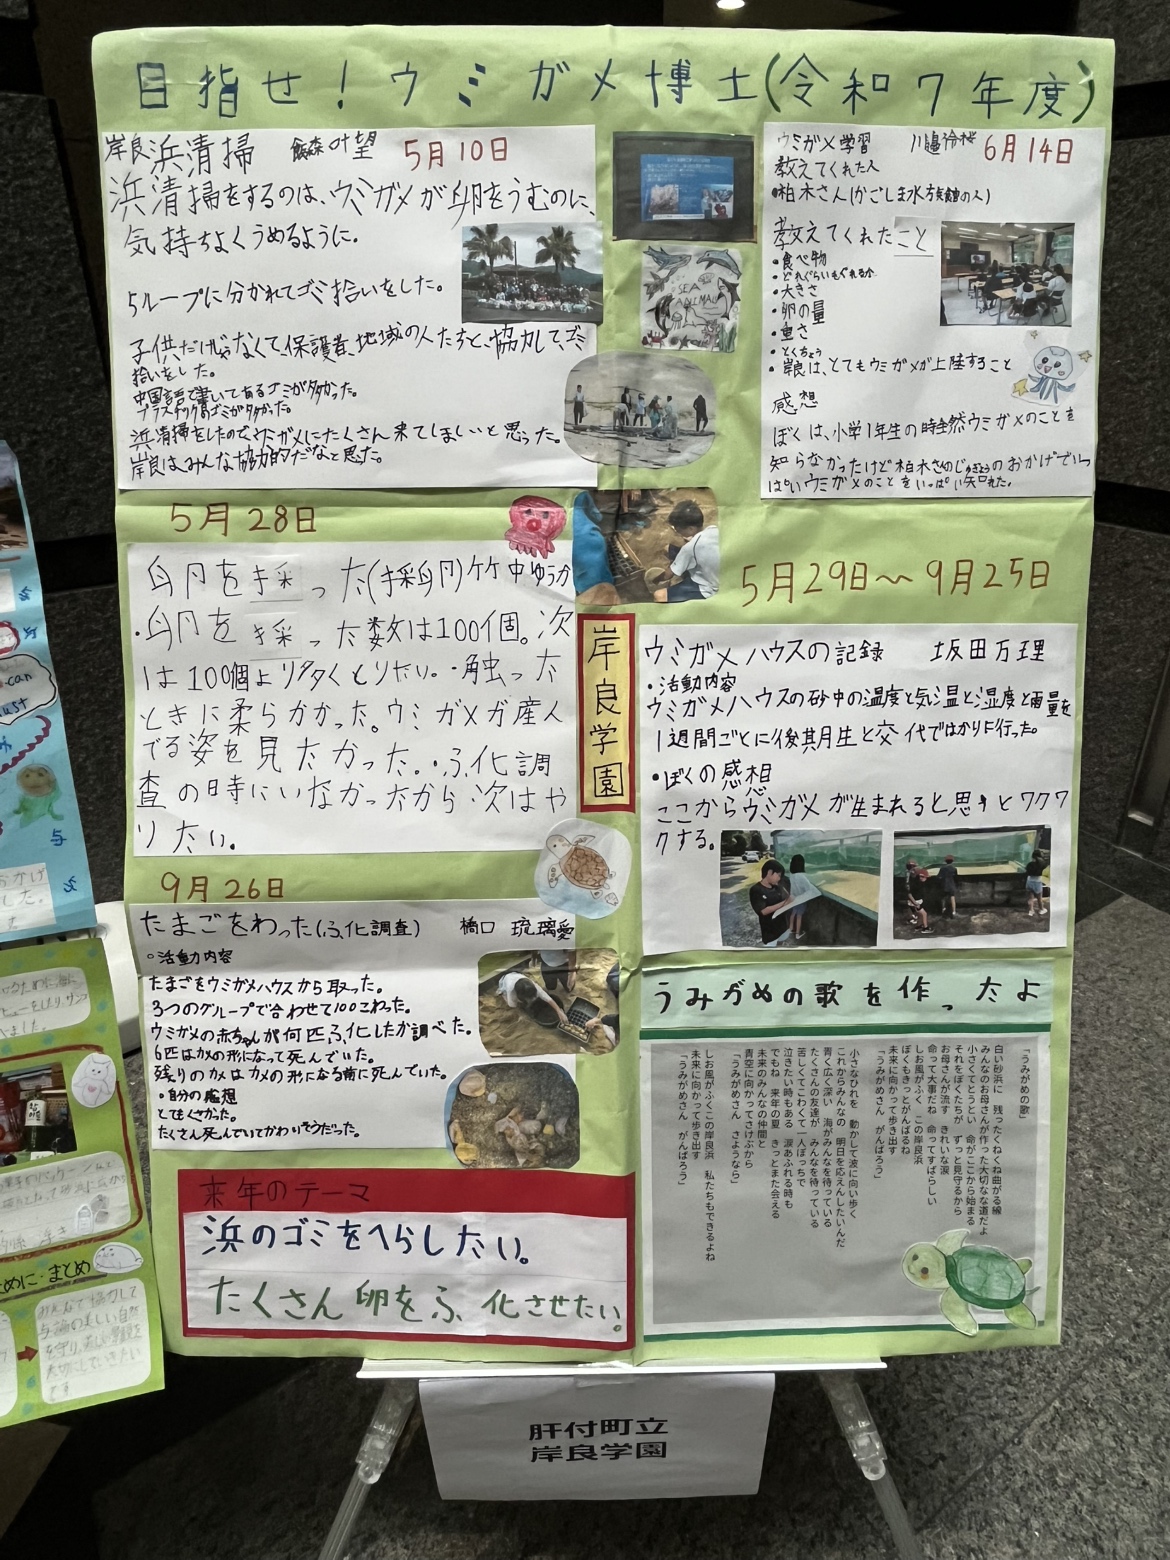 目指せ！ウミガメ博士(令和7年度)
岸良浜清掃 飯森叶望 5月10日
浜清掃をするのは、ウミガメが卵をうむのに、
気持ちよくうめるように。
5ループに分かれてゴミ拾いをした。
子供だけじゃなくて、保護者、地域の人たちと、協力して、ゴミ
拾いをした。
中国語で書いてあるゴミが多かった。
プラスチックのゴミが多かった。
浜清掃をしたので、ウミガメにたくさん来てほしいと思った。
岸良はみんな協力的だなと思った。
SEA
ANIMAL
ウミガメ学習 6月14日
教えてくれた人
・柏木さん(かごしま水族館の人)
教えてくれたこと
・食べ物
・どれぐらいもぐれるか
・大きさ
・卵の量
・重さ
・とくちょう
・岸良は、とてもウミガメが上陸すること
感想
ぼくは、小学1年生の時全然ウミガメのことを
知らなかったけど柏木さんのじゅぎょうのおかげでいっ
ぱいウミガメのことをいっぱい知れた。
5月28日
卵を採った(採卵)竹中ゆうか
・卵を採った数は100個。次
は100個より多くとりたい。・触った
ときに柔らかかった。ウミガメが産ん
でる姿を見たかった。・ふ化調
査の時にいなかったから次はや
りたい。
岸良学園
5月29日〜9月25日
ウミガメハウスの記録 坂田万理
・活動内容
ウミガメハウスの砂中の温度と気温と湿度と雨量を
1週間ごとに後期生と交代ではかりに行った。
・ぼくの感想
ここからウミガメが生まれると思うとワクワ
クする。
9月26日
たまごをわった(ふ化調査) 橋口 琉璃愛
○活動内容
たまごをウミガメハウスから取った。
3つのグループで合わせて100こわった。
ウミガメの赤ちゃんが何匹ふ化したか調べた。
6匹はカメの形になって死んでいた。
残りのカメはカメの形になる前に死んでいた。
・自分の感想
とてもくさかった。
たくさん死んでいてかわいそうだった。
来年のテーマ
浜のゴミをへらしたい。
たくさん卵をふ化させたい。
うみがめの歌を作ったよ
「うみがめの歌」
白い砂浜に 残ったくねくね曲がる線
みんなのお母さんが作った大切なな道だよ
小さくてとうとい 命がここから始まる
それをぼくたちが ずっと見守るから
お母さんが流す きれいな涙
命って大事だね 命ってすばらしい
しお風がふく この岸良浜
ぼくもきっとがんばるね
未来に向かって歩き出す
「うみがめさん がんばろう」
小さなひれを 動かして波に向い歩く
これからみんなの 明日を応えんしたいんだ
青く広く深い 海がみんなを待っている
たくさんの友達が みんなを待っている
苦しくてこわくて 一人ぼっちで
泣きたい時もある 涙あふれる時も
でもね 来年の夏 きっとまた会える
未来のみんなの仲間と
青空に向かってさけぶから
「うみがめさん さようなら」
しお風がふくこの岸良浜 私たちもできるよね
未来に向かって歩き出す
「うみがめさん がんばろう」
肝付町立
岸良学園